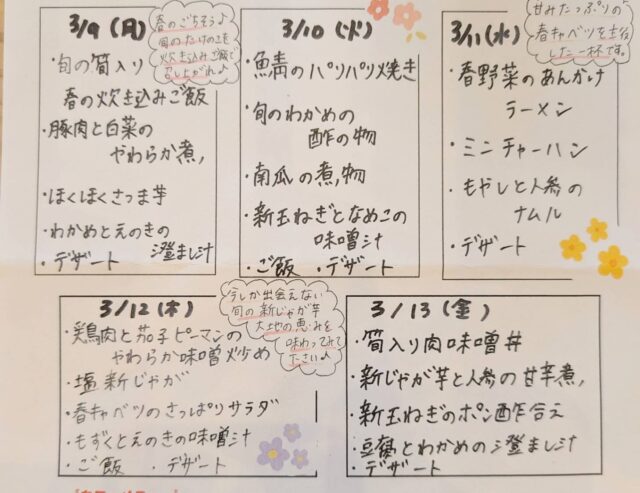 3/9(月)
春のごちそう♪
旬のたけのこを
炊き込みご飯で
召し上がれ♪
・旬の筍入り
春の炊き込みご飯
・豚肉と白菜の
やわらか煮
・ほくほくさつま芋
・わかめとえのきの
澄まし汁
・デザート
3/10(火)
・魚鯖のパリパリ焼き
・旬のわかめの
酢の物
・南瓜の煮物
・新玉ねぎとなめこの
味噌汁
・ご飯 ・デザート
3/11(水)
甘みたっぷりの
春キャベツを
した一杯です。
・春野菜のあんかけ
ラーメン
・ミニチャーハン
・もやしと人参の
ナムル
・デザート
3/12(木)
今しか出会えない
旬の新じゃが芋
大地の恵みを
味わってみて
ださい♪
・鶏肉と茄子ピーマンの
やわらか味噌炒め
・塩新じゃが
・春キャベツのさっぱりサラダ
・もずくとえのきの味噌汁
・ご飯 ・デザート
3/13(金)
・筍入り肉味噌丼
・新じゃが芋と人参の甘辛煮
・新玉ねぎのポン酢合え
・豆腐とわかめの澄まし汁
・デザート